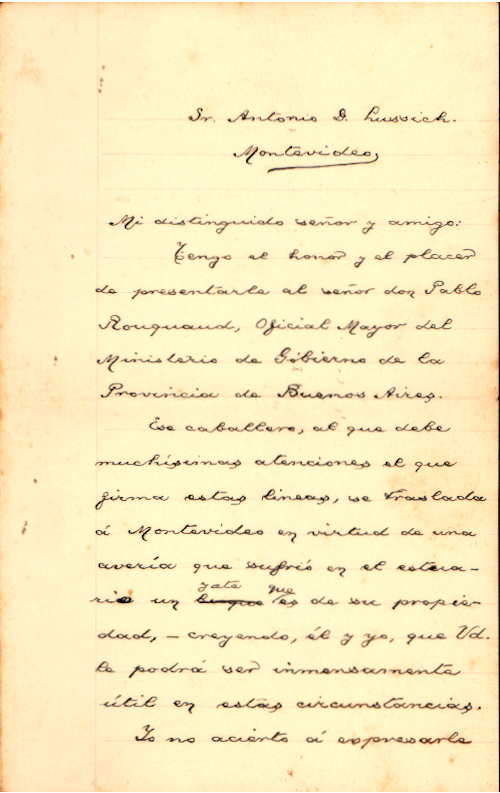 Sr. Antonio D. Lussich.
Montevideo,
Mi distinguido señor y amigo:
Tengo el honor y el placer
de presentarle al señor don Pablo
Rouquaud, Oficial Mayor del
Ministerio de Gobierno de la
Provincia de Buenos Aires.
Ese caballero, al que debe
muchísimas atenciones el que
firma estas líneas, se traslada
á Montevideo en virtud de una
avería que sufrió en el estua-
yate que
rio un buque es de su propie-
dad, – creyendo, él y yo, que Vd.
le podrá ser inmensamente
útil en estas circunstancias.
Yo no acierto á expresarle